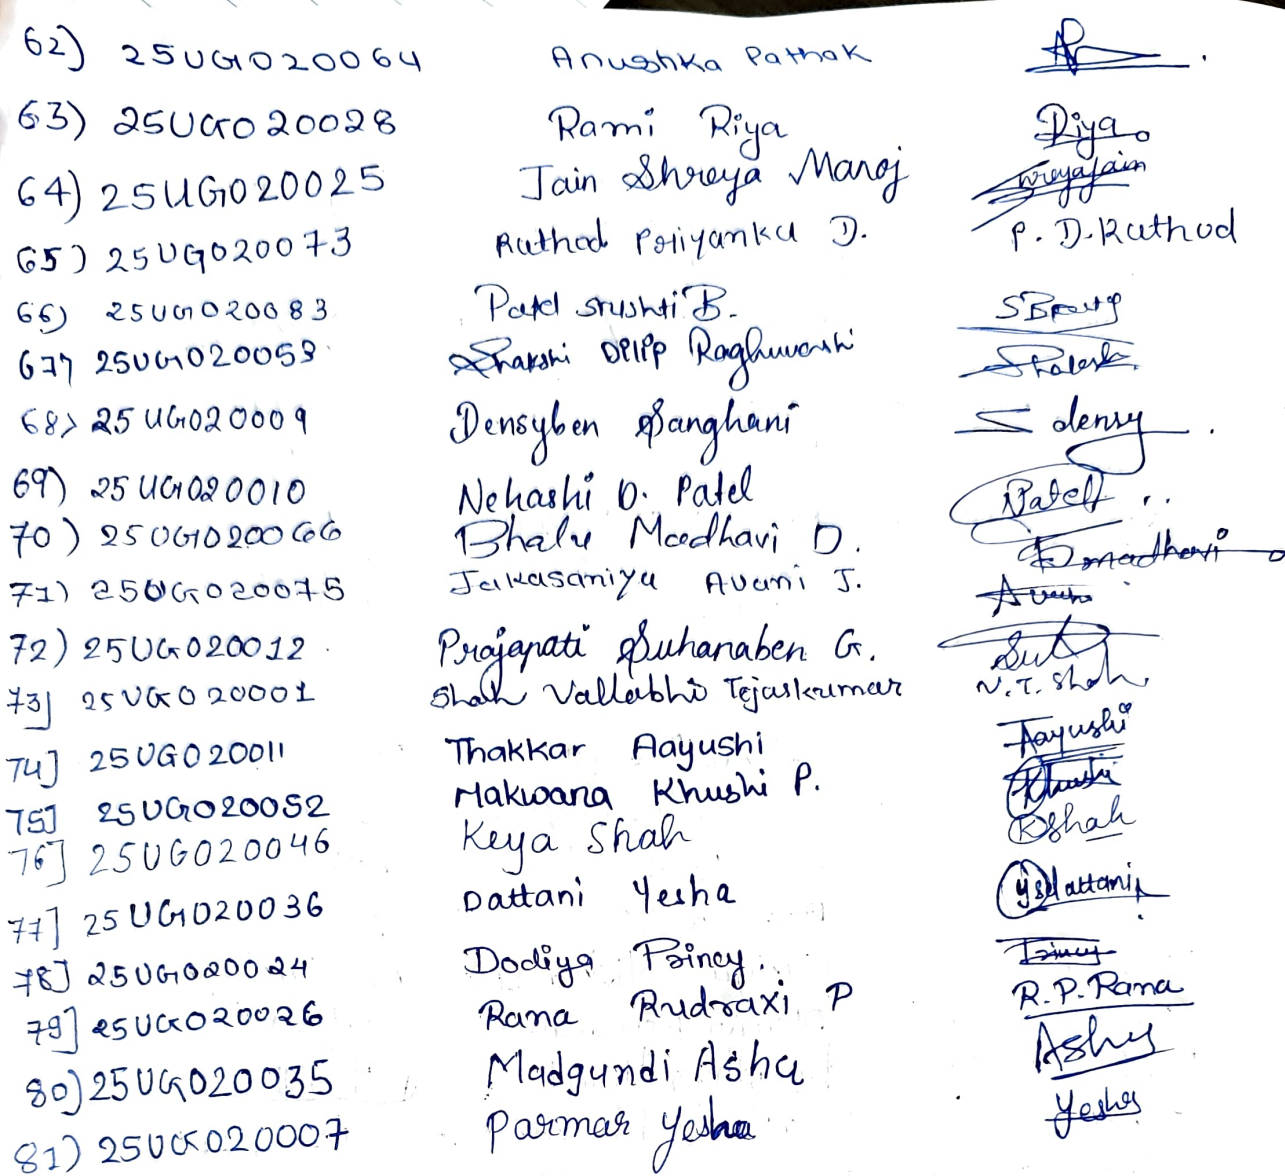 62) 25UG020064 Anushka Pathak
63) 25UG020028 Rami Riya Riya
64) 25UG020025 Jain Shreya Manoj Shreyajain
65) 25UG020073 Rathod Priyanka D. P. D. Rathod
66) 25UG020083 Patel srushti B.
67) 25UG020059 Shakshi Dilip Raghuvanshi
68) 25UG020009 Densyben Sanghani S densy
69) 25UG020010 Nehashi D. Patel Patel
70) 25UG020066 Bhalu Madhavi D. madhavi
71) 25UG020075 Jakasaniya Avani J.
72) 25UG020012 Prajapati Suhanaben G.
73] 25UG020001 Shah Vallabhi Tejaskumar V. T. Shah
74] 25UG020011 Thakkar Aayushi Aayushi
75] 25UG020052 Makwana Khushi P. Khushi
76] 25UG020046 Keya Shah KShah
77] 25UG020036 Dattani Yesha ysdattani
78] 25UG020024 Dodiya Princy. Princy
79] 25UG020026 Rana Rudraxi P R. P. Rana
80) 25UG020035 Madgundi Asha Asha
81) 25UG020007 Parmar Yesha Yesha